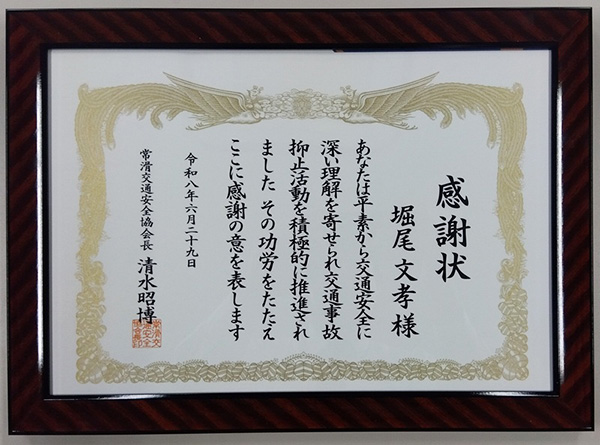 感謝状
堀尾文孝様
あなたは平素から交通安全に
深い理解を寄せられ交通事故
抑止活動を積極的に推進され
ました その功労をたたえ
ここに感謝の意を表します
令和八年六月二十九日
常滑交通安全協会長 清水昭博